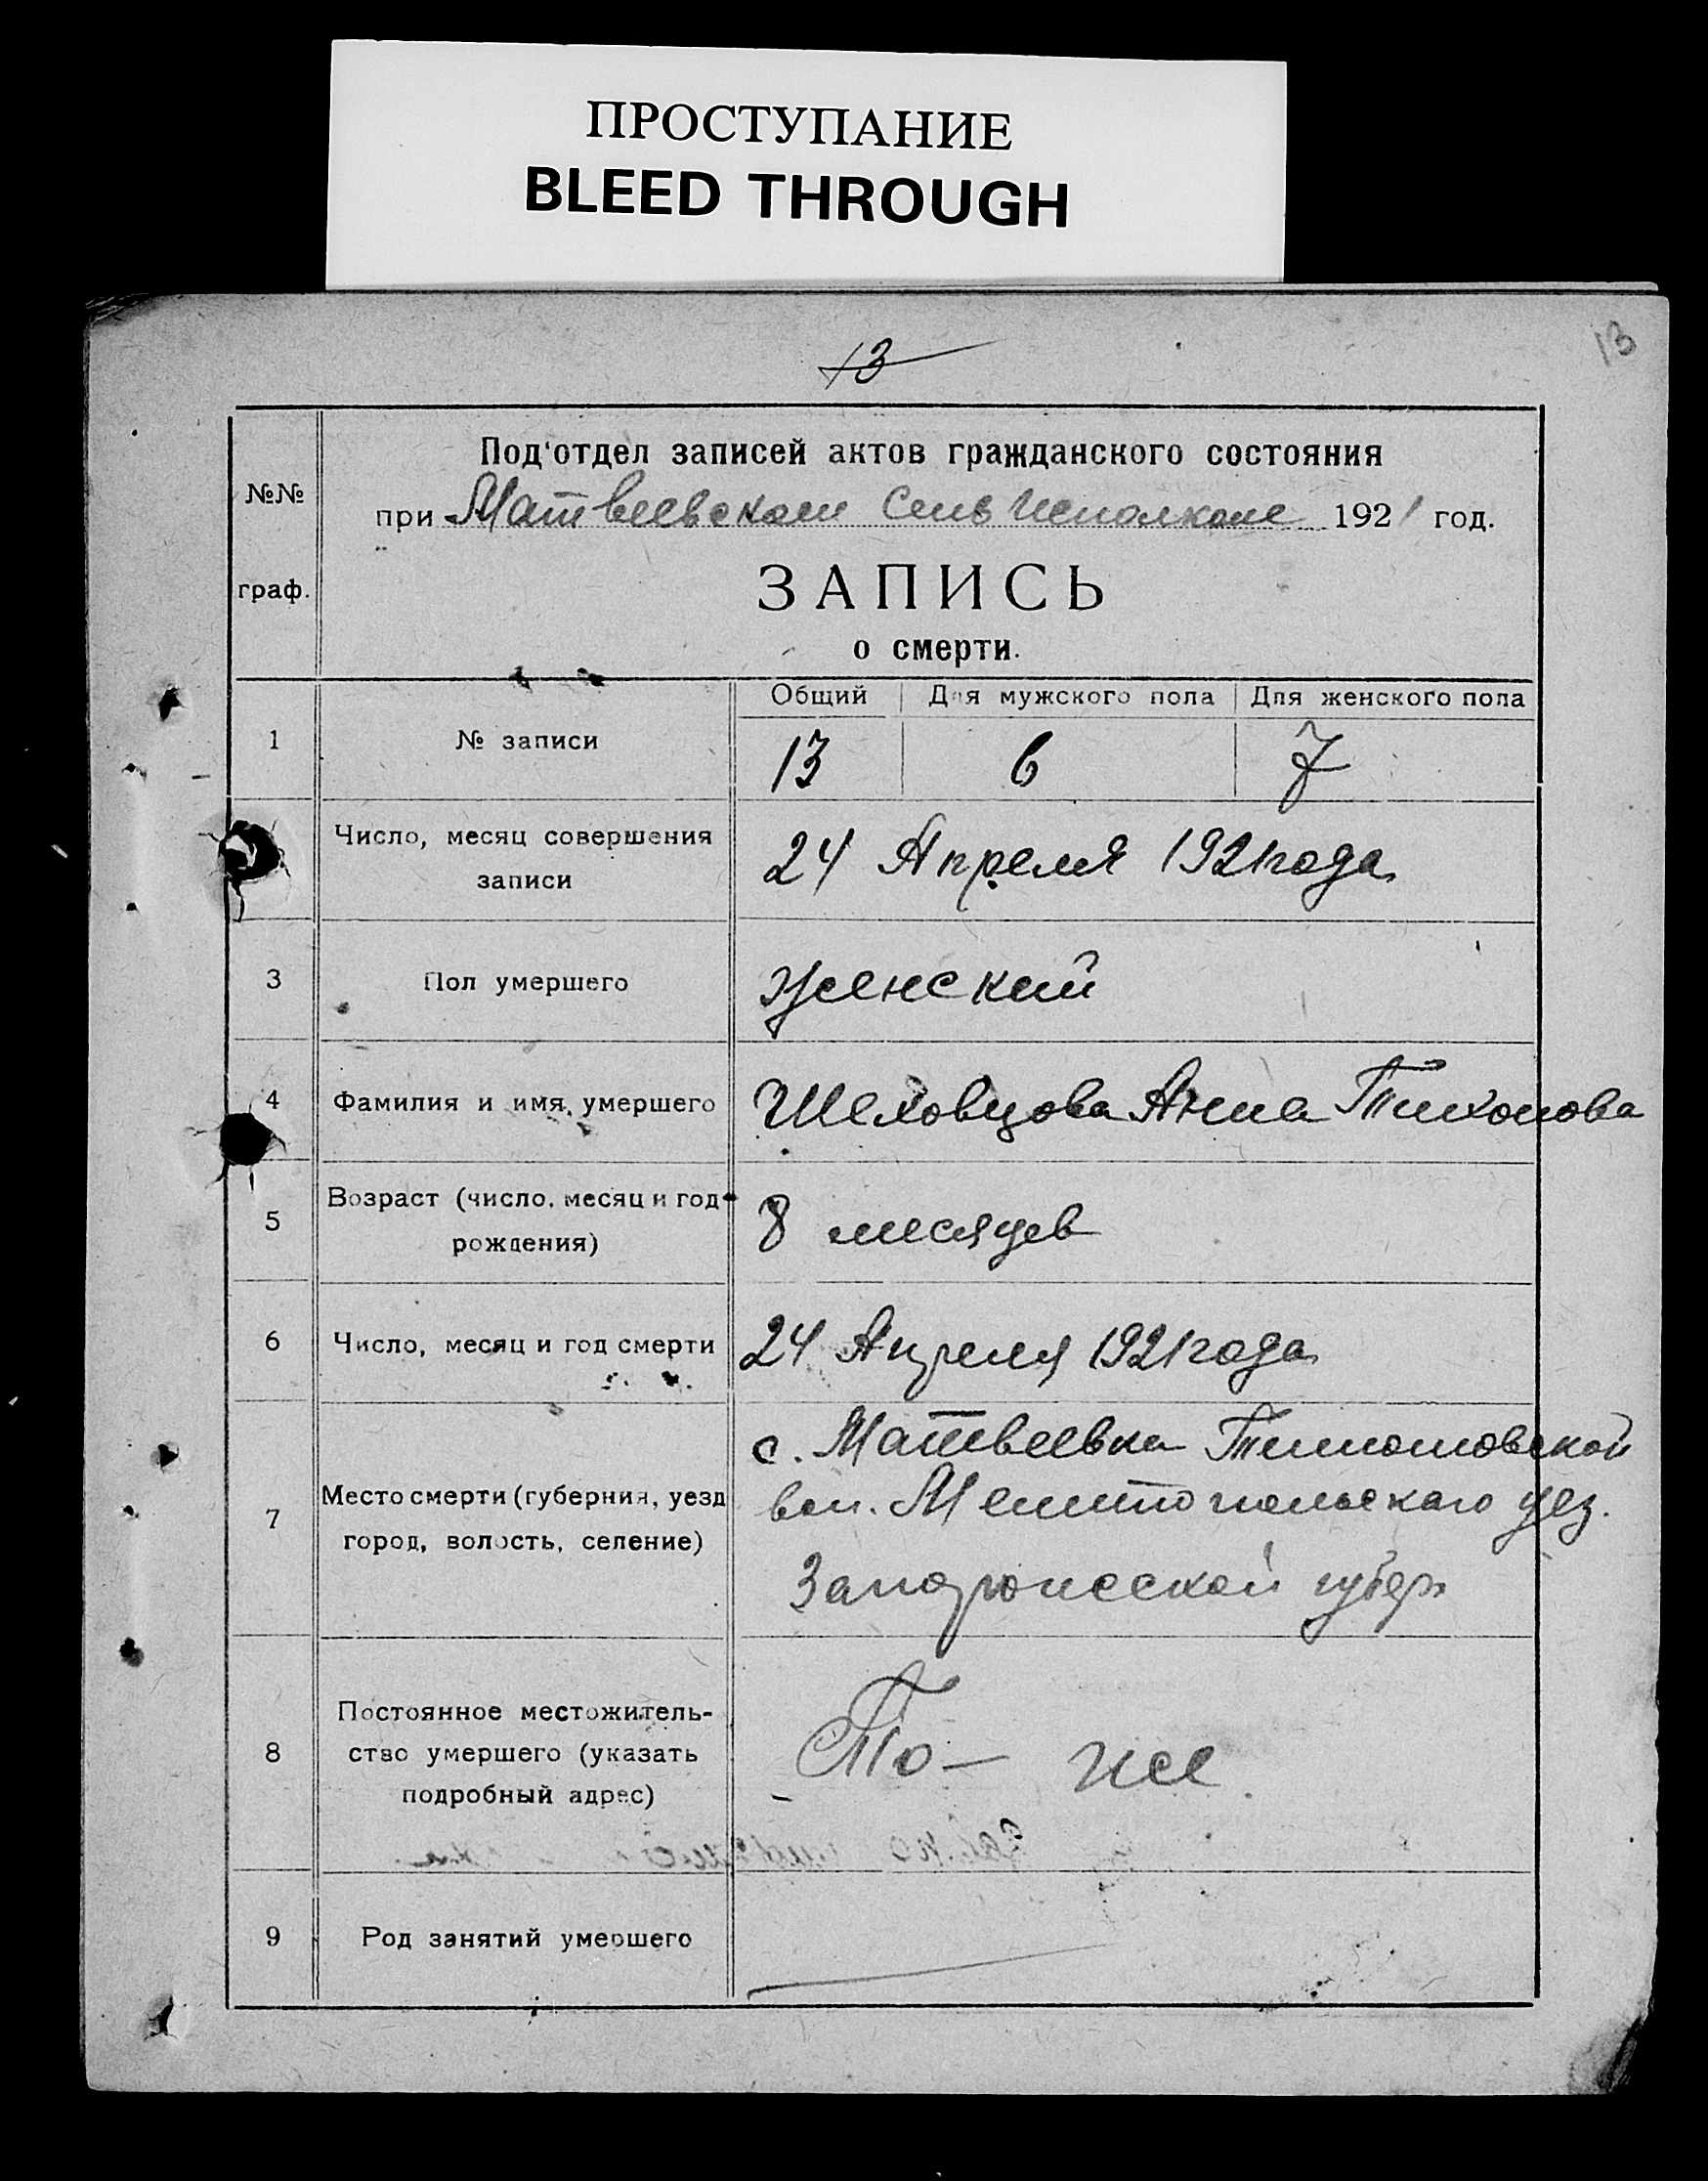 ПРОСТУПАНИЕ
BLEED THROUGH
13
13
Под'отдел записей актов гражданского состояния
№№
при Матвеевском Сельисполкоме 1921 год.
граф.
ЗАПИСЬ
о смерти.
Общий Для мужского пола Для женского пола
1 № записи 13 6 7
Число, месяц совершения
записи
24 Апреля 1921 года
3 Пол умершего женский
4 Фамилия и имя умершего Шеховцова Анна Тихонова
Возраст (число, месяц и год
5 8 месяцев
рождения)
6 Число, месяц и год смерти 24 Апреля 1921 года
с. Матвеевка Тимошовской
Место смерти (губерния, уезд вол. Мелитопольскаго уез.
7
город, волость, селение)
Запорожской губер
Постоянное местожитель-
8 ство умершего (указать То-же
подробный адрес)
9 Род занятий умершего